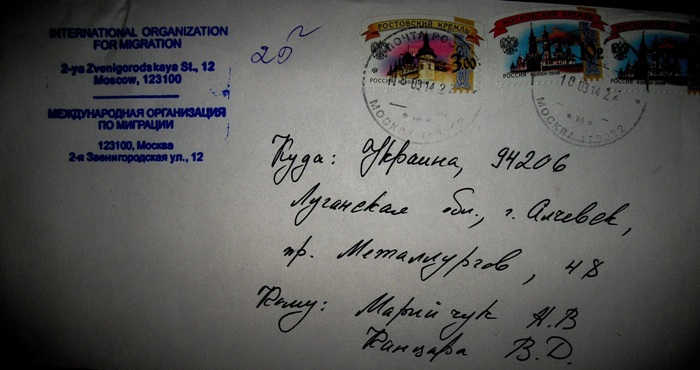 INTERNATIONAL ORGANIZATION
FOR MIGRATION
2-ya Zvenigorodskaya St., 12
Moscow, 123100
МЕЖДУНАРОДНАЯ ОРГАНИЗАЦИЯ
ПО МИГРАЦИИ
123100, Москва
2-я Звенигородская ул., 12
РОСТОВСКИЙ КРЕМЛЬ
ПОЧТА
3.00
РОССИЯ
18 03 14 22
МОСКВА
МОСКОВСКИЙ КРЕМЛЬ
РОССИЯ
18 03 14 22
МОСКВА
РОССИЯ
Куда: Украина, 94206
Луганская обл., г. Алчевск,
пр. Металлургов, 48
Кому: Марийчук Н.В
Канцара В.Д.